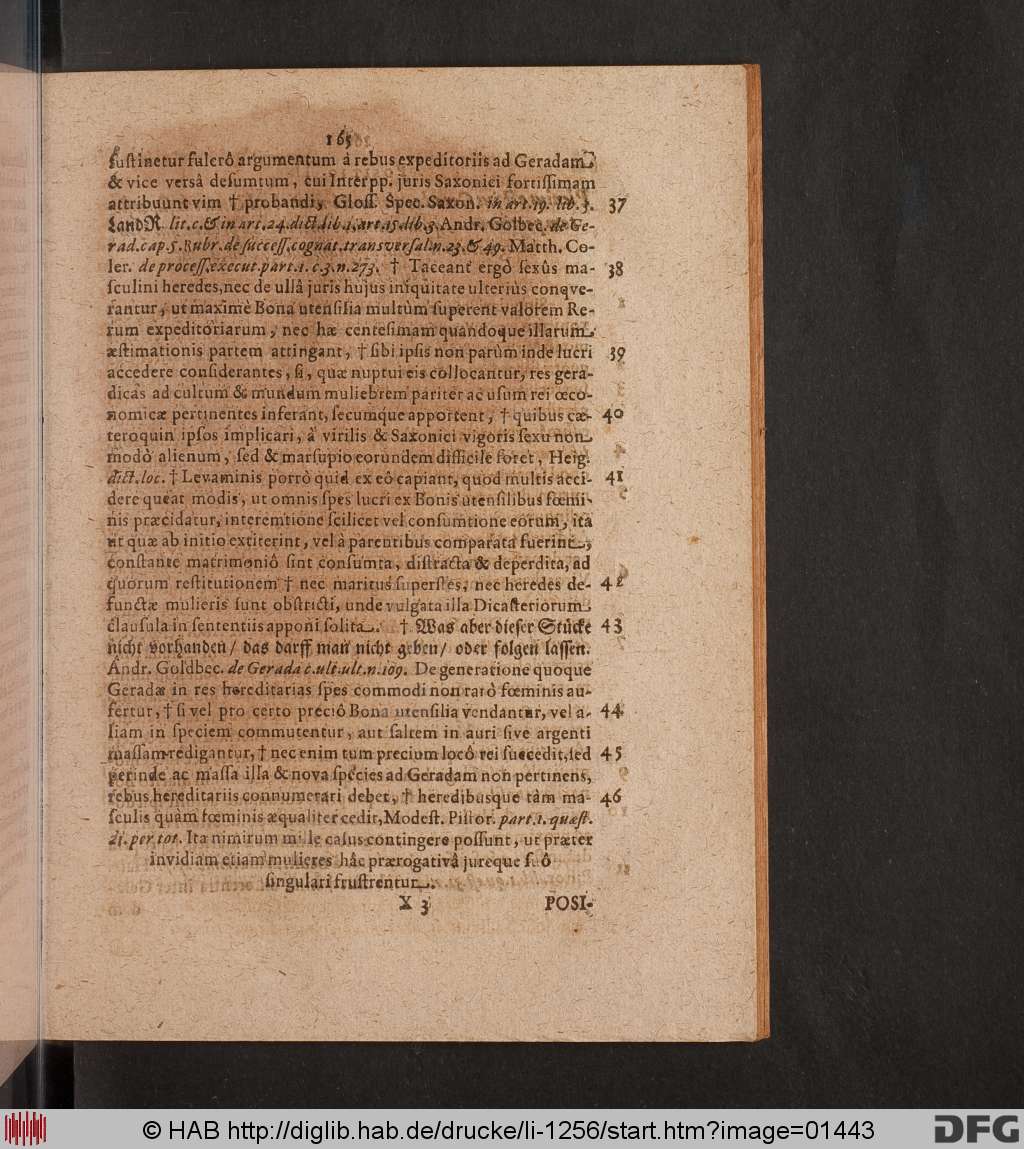 165
ſuſtinetur fulcrô argumentum à rebus expeditoriis ad Geradam
& vice versâ deſumtum, cui Interpp. juris Saxonici fortiſſimam
attribuunt vim † probandi, Gloſſ. Spec. Saxon. in art. 19. lib. 3. 37
LandR. lit. c. & in art. 24. dict. lib. 1. art. 15. lib. 3. Andr. Golbec. de Ge-
rad. cap. 5. Rubr. de ſucceſſ. cognat. transverſal. n. 23. & 49. Matth. Co-
ler. de proceſſ. execut. part. 1. c. 3. n. 273. † Taceant ergò ſexûs ma- 38
ſculini heredes, nec de ullâ juris hujus iniquitate ulterius conqve-
rantur, ut maximè Bona utenſilia multùm ſuperent valorem Re-
rum expeditoriarum, nec hæ centeſimam quandoque illarum
æſtimationis partem attingant, † ſibi ipſis non parùm inde lucri 39
accedere conſiderantes, ſi, quæ nuptui eis collocantur, res gera-
dicas ad cultum & mundum muliebrem pariter ac uſum rei œco-
nomicæ pertinentes inferant, ſecumque apportent, † quibus cæ- 40
teroquin ipſos implicari, à virilis & Saxonici vigoris ſexu non
modò alienum, ſed & marſupio eorundem difficile foret, Heig.
dict. loc. † Levaminis porrò quid ex eô capiant, quod multis acci- 41
dere queat modis, ut omnis ſpes lucri ex Bonis utenſilibus fœmi-
nis præcidatur, interemtione ſcilicet vel conſumtione eorum, ita
ut quæ ab initio extiterint, vel à parentibus comparata fuerint,
conſtante matrimoniô ſint conſumta, diſtracta & deperdita, ad
quorum reſtitutionem † nec maritus ſuperſtes, nec heredes de- 42
functæ mulieris ſunt obſtricti, unde vulgata illa Dicaſteriorum
clauſula in ſententiis apponi ſolita. † Was aber dieſer Stücke 43
nicht vorhanden/ das darff man nicht geben/ oder folgen laſſen.
Andr. Goldbec. de Gerada c. ult. ult. n. 109. De generatione quoque
Geradæ in res hereditarias ſpes commodi non rarò fœminis au-
fertur, † ſi vel pro certo preciô Bona utenſilia vendantur, vel a- 44
liam in ſpeciem commutentur, aut ſaltem in auri ſive argenti
maſſam redigantur, † nec enim tum precium locô rei ſuccedit, ſed 45
perinde ac maſſa illa & nova ſpecies ad Geradam non pertinens,
rebus hereditariis connumerari debet, † heredibusque tàm ma- 46
ſculis quàm fœminis æqualiter cedit, Modeſt. Piſtor. part. 1. quæſt.
21. per tot. Ita nimirum mille caſus contingere poſſunt, ut præter
invidiam etiam mulieres hâc prærogativâ jureque ſuô
ſingulari fruſtrentur.
X 3 POSI-
© HAB http://diglib.hab.de/drucke/li-1256/start.htm?image=01443
DFG